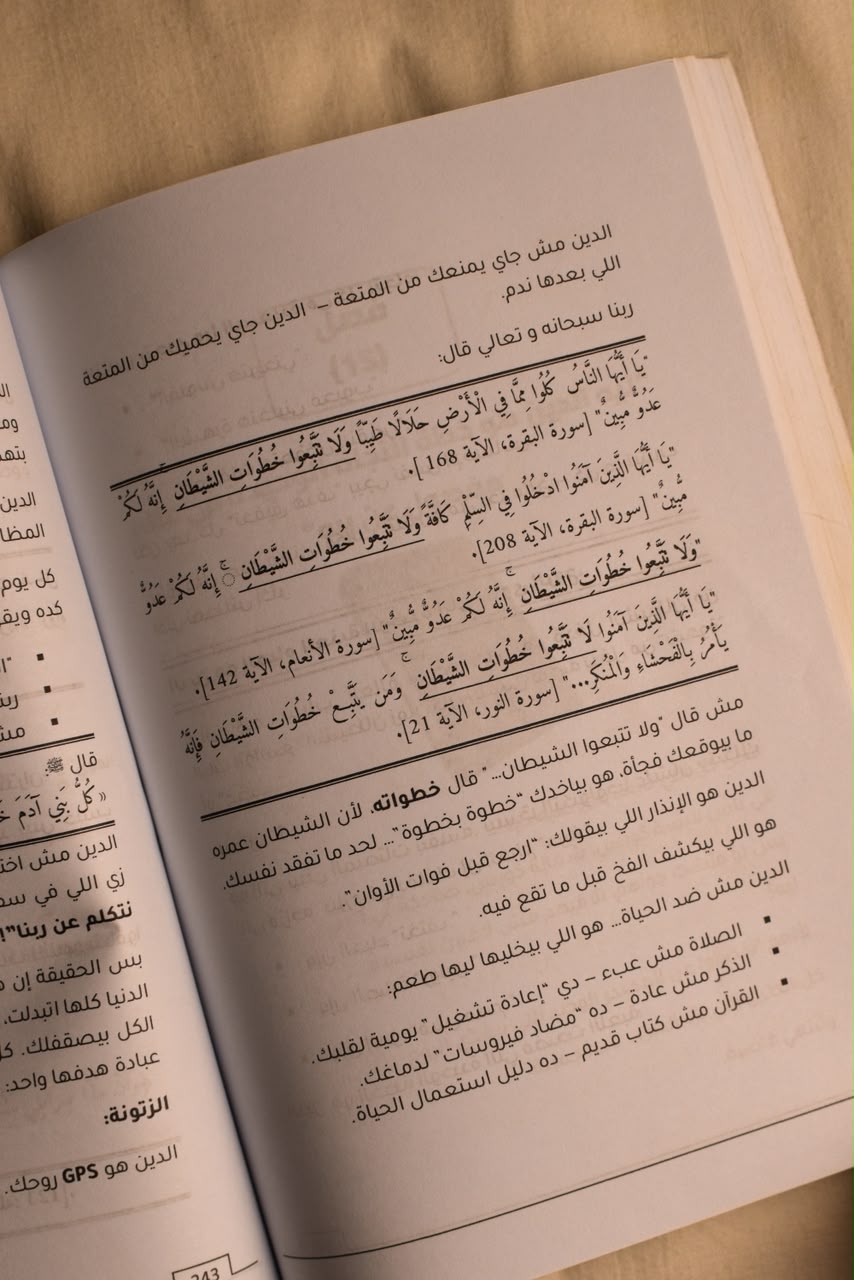 الدين مش جاي يمنعك من المتعة – الدين جاي يحميك من المتعة
اللي بعدها ندم.
ربنا سبحانه و تعالي قال:
"يَا أَيُّهَا النَّاسُ كُلُوا مِمَّا فِي الْأَرْضِ حَلَالًا طَيِّبًا وَلَا تَتَّبِعُوا خُطُوَاتِ الشَّيْطَانِ ۚ إِنَّهُ لَكُمْ
عَدُوٌّ مُّبِينٌ" [سورة البقرة، الآية 168 ].
"يَا أَيُّهَا الَّذِينَ آمَنُوا ادْخُلُوا فِي السِّلْمِ كَافَّةً وَلَا تَتَّبِعُوا خُطُوَاتِ الشَّيْطَانِ ۚ إِنَّهُ لَكُمْ عَدُوٌّ
مُّبِينٌ" [سورة البقرة، الآية 208].
"وَلَا تَتَّبِعُوا خُطُوَاتِ الشَّيْطَانِ ۚ إِنَّهُ لَكُمْ عَدُوٌّ مُّبِينٌ" [سورة الأنعام، الآية 142].
"يَا أَيُّهَا الَّذِينَ آمَنُوا لَا تَتَّبِعُوا خُطُوَاتِ الشَّيْطَانِ ۚ وَمَن يَتَّبِعْ خُطُوَاتِ الشَّيْطَانِ فَإِنَّهُ
يَأْمُرُ بِالْفَحْشَاءِ وَالْمُنكَرِ..." [سورة النور، الآية 21].
مش قال "ولا تتبعوا الشيطان..." قال خطواته، لأن الشيطان عمره
ما بيوقعك فجأة، هو بياخدك "خطوة بخطوة"... لحد ما تفقد نفسك.
الدين هو الإنذار اللي بيقولك: "ارجع قبل فوات الأوان".
هو اللي بيكشف الفخ قبل ما تقع فيه.
الدين مش ضد الحياة... هو اللي بيخليها ليها طعم:
▪ الصلاة مش عبء – دي "إعادة تشغيل" يومية لقلبك.
▪ الذكر مش عادة – ده "مضاد فيروسات" لدماغك.
▪ القرآن مش كتاب قديم – ده دليل استعمال الحياة.
بتھ
الدين
المظا
كل يوم
كده ويقو
▪
▪ ربنا
▪ مش
قال ﷺ:
«كُلُّ بَنِي آدَمَ
الدين مش اخت
زي اللي في سم
نتكلم عن ربنا"!
بس الحقيقة إن
الدنيا كلها اتبدلت،
الكل بيصقفلك. كل
عبادة هدفها واحد:
الزتونة:
الدين هو GPS روحك.
243